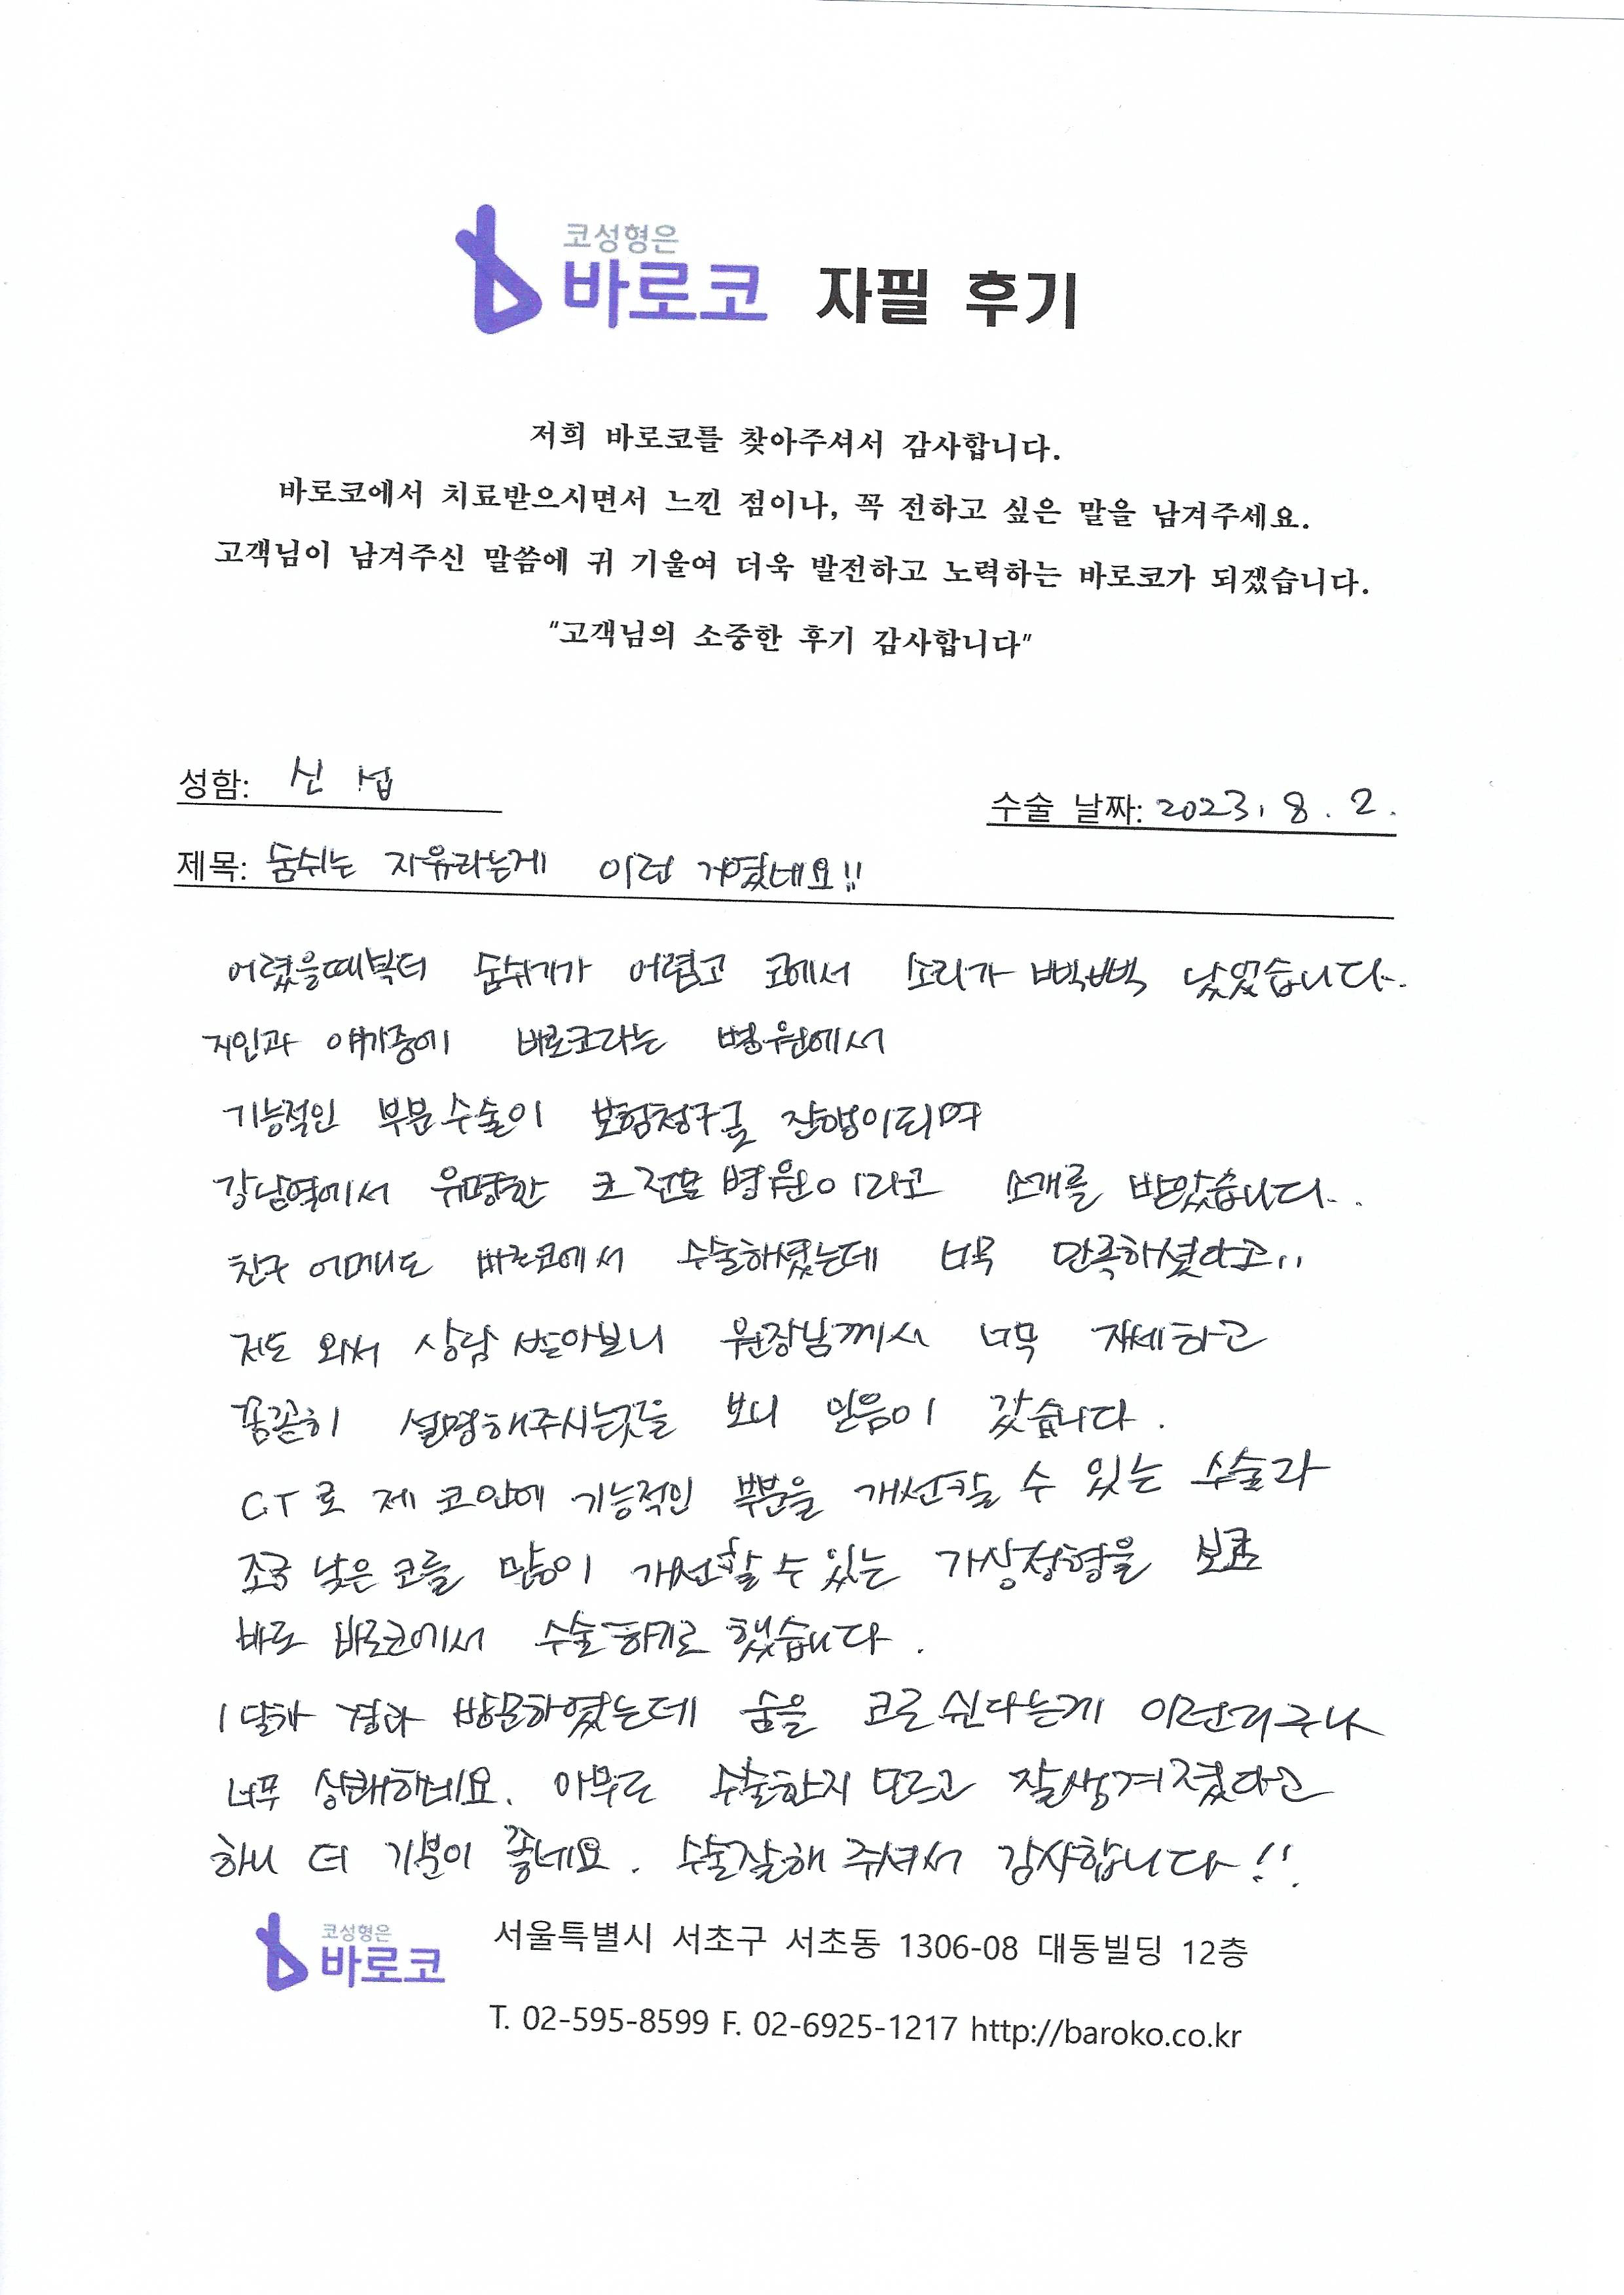 코성형은
바로코 자필 후기
저희 바로코를 찾아주셔서 감사합니다.
바로코에서 치료받으시면서 느낀 점이나, 꼭 전하고 싶은 말을 남겨주세요.
고객님이 남겨주신 말씀에 귀 기울여 더욱 발전하고 노력하는 바로코가 되겠습니다.
"고객님의 소중한 후기 감사합니다"
성함: 신 섭
수술 날짜: 2023. 8. 2.
제목: 숨쉬는 자유라는게 이런 거였네요!!
어렸을때부터 숨쉬기가 어렵고 코에서 소리가 삑삑 났었습니다.
지인과 얘기중에 바로코라는 병원에서
기능적인 부분수술이 보험청구로 진행이되며
강남역에서 유명한 코 전문 병원이라고 소개를 받았습니다..
친구 어머니도 바로코에서 수술하셨는데 너무 만족하셨다고..
저도 와서 상담 받아보니 원장님께서 너무 자세하고
꼼꼼히 설명해주시는것을 보니 믿음이 갔습니다.
CT로 제 코안에 기능적인 부분을 개선할 수 있는 수술과
조금 낮은 코를 많이 개선할 수 있는 가상성형을 보고
바로 바로코에서 수술하기로 했습니다.
1달차 경과 방문하였는데 숨을 코로 쉰다는게 이런거구나
너무 상쾌하네요. 아무도 수술한지 모르고 잘생겨졌다고
하니 더 기분이 좋네요. 수술잘해 주셔서 감사합니다!!
코성형은
바로코
서울특별시 서초구 서초동 1306-08 대동빌딩 12층
T. 02-595-8599 F. 02-6925-1217 http://baroko.co.kr